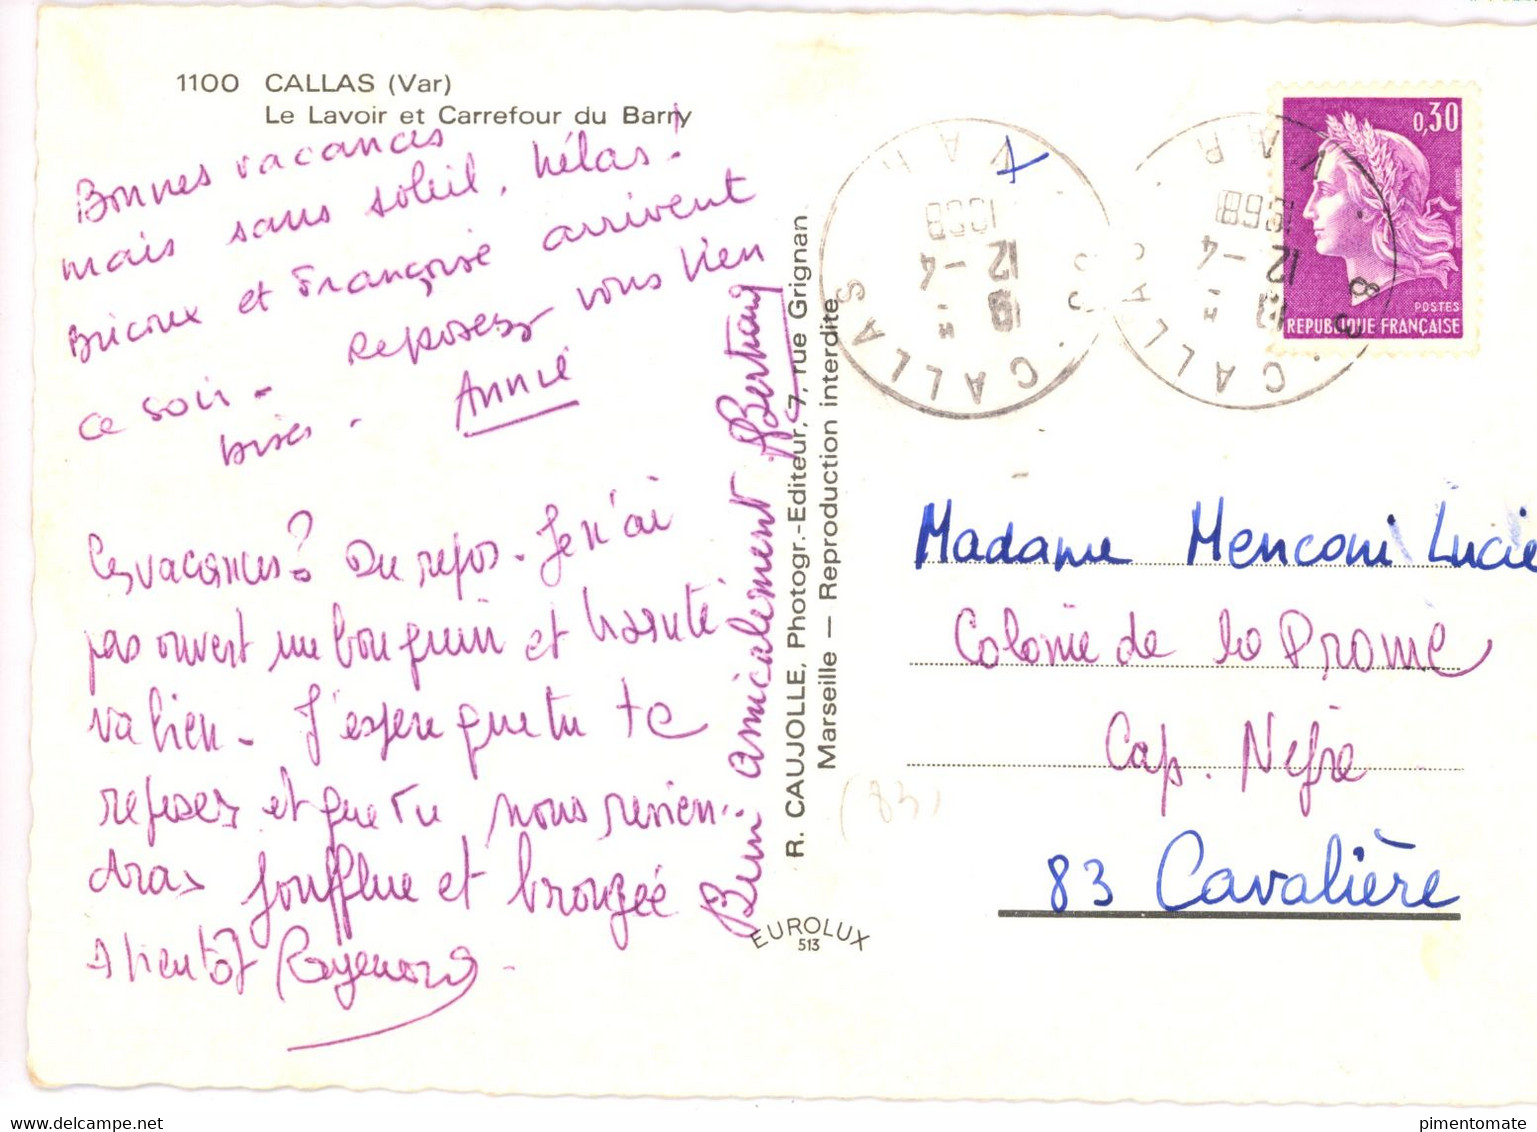 1100 CALLAS (Var)
Le Lavoir et Carrefour du Barry
Bonnes vacances
mais sans soleil, hélas!
et Françoise arrivent
ce soir - Reposez vous bien
bises. Annie
Ces vacances? Du repos. Je n'ai
pas ouvert un bouquin et la santé
va bien. J'espère que tu te
reposes et que tu nous revien-
dras joufflue et bronzée
A bientôt
Bien amicalement
R. CAUJOLLE, Photogr.-Editeur, 7, rue Grignan
Marseille — Reproduction interdite
EUROLUX
513
CALLAS
VAR
19 H
12 - 4
1968
CALLAS
83
VAR
19 H
12 - 4
1968
0,30
POSTES
REPUBLIQUE FRANÇAISE
Madame Menconi Lucie
Colonie de la
Cap. Nègre
(83)
83 Cavalière
pimentomate